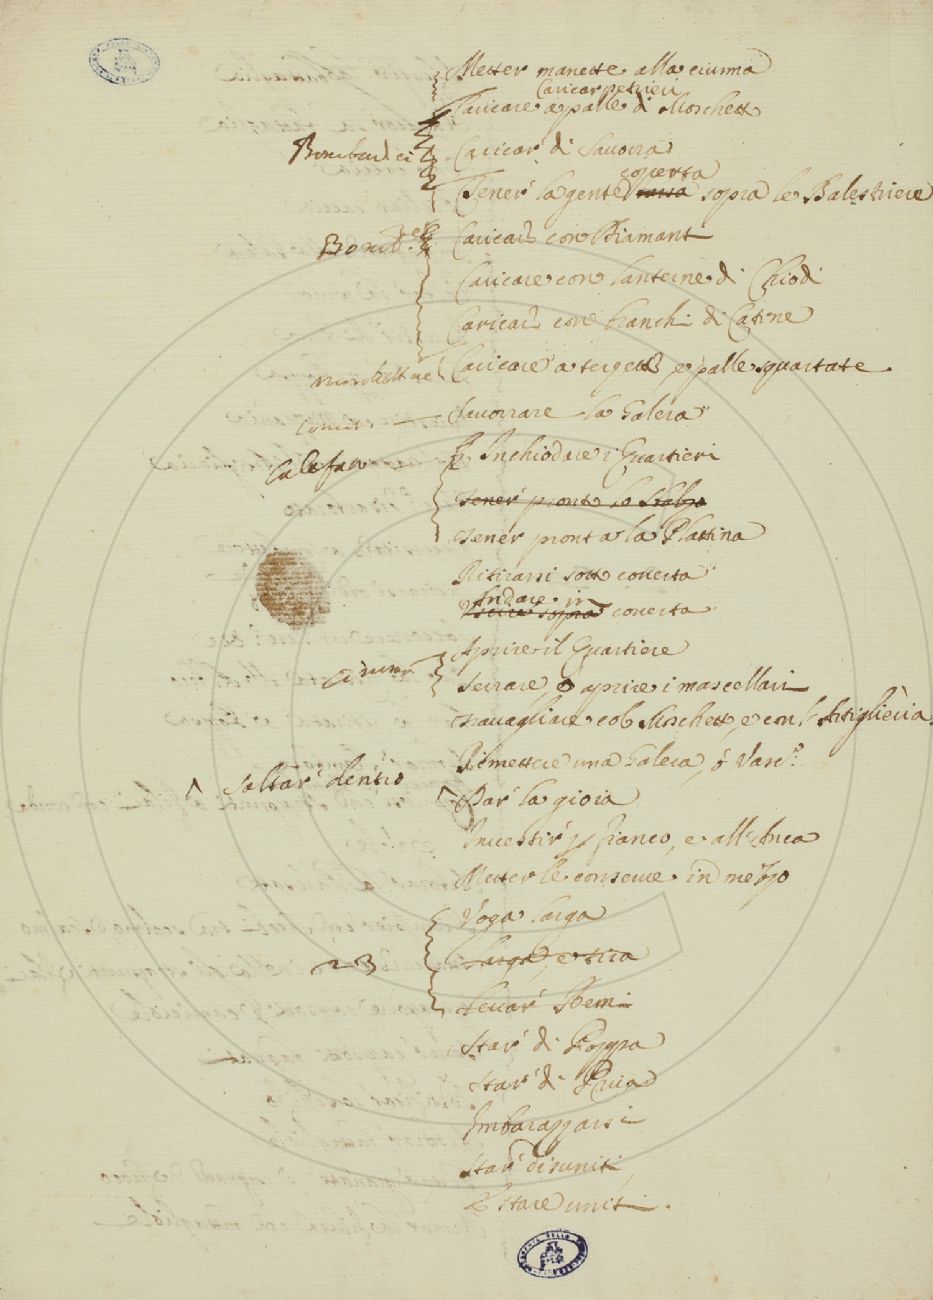 Metter manette alla ciurma
Caricar petrieri
Caricare a palle di Moschetto
Bombardieri
Caricar di Savorra
coperta
Tener la gente bassa sopra le Balestriere
Bomb.ri
Caricar con Diamanti
Caricare con lanterne di Chiodi
Caricar con branchi di Catene
Caricare a sergetti, e palle squartate
Savorrare la Galera
Calafao
Inchiodare i Quartieri
Tener pronto lo Stelzo
Tener pronta la Plattina
Ritirarsi sotto coverta
Andare in
Uscire sopra coverta
Aprire il Quartiere
Serrare, o aprire i mascellari
Travagliare col Moschetto, e con l'Artiglieria.
Rimettere una Galera, o Vasc.o
Saltar dentro
Dar la gioia
Investir p fianco, e all'Anca
Metter le conserve in mezzo
Voga larga
23
Larga, e tira
Levar Remi
Star di Poppa
Star di Prua
Imbarazzarsi
Star disuniti
E stare uniti.